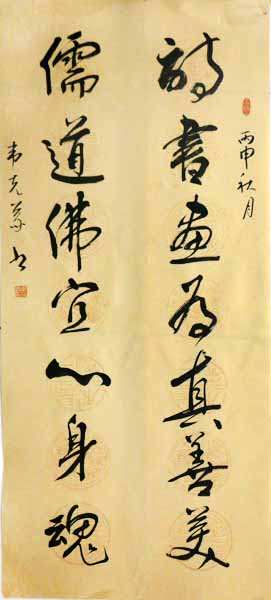 丙申秋月
詩書畫為真善美
儒道佛宜心身魂
韦克义书